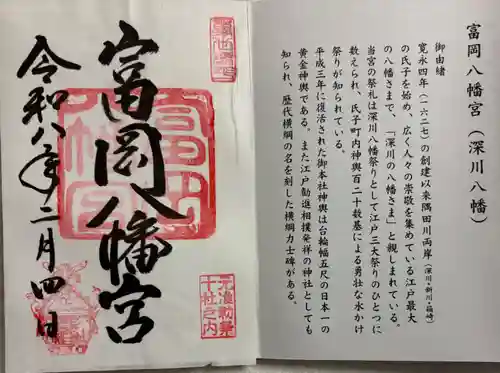 富岡八幡宮（深川八幡）
御由緒
寛永四年（一六二七）の創建以来隅田川両岸（深川・新川・箱崎）
の氏子を始め、広く人々の崇敬を集めている江戸最大
の八幡さまで、「深川の八幡さま」と親しまれている。
当宮の祭礼は深川八幡祭りとして江戸三大祭りのひとつに
数えられ、氏子町内神輿百二十数基による勇壮な水かけ
祭りが知られている。
平成三年に復活された御本社神輿は台輪幅五尺の日本一の
黄金神輿である。また江戸勧進相撲発祥の神社としても
知られ、歴代横綱の名を刻した横綱力士碑がある。
富岡八幡宮
令和八年二月四日
元准勅祭
十社之内